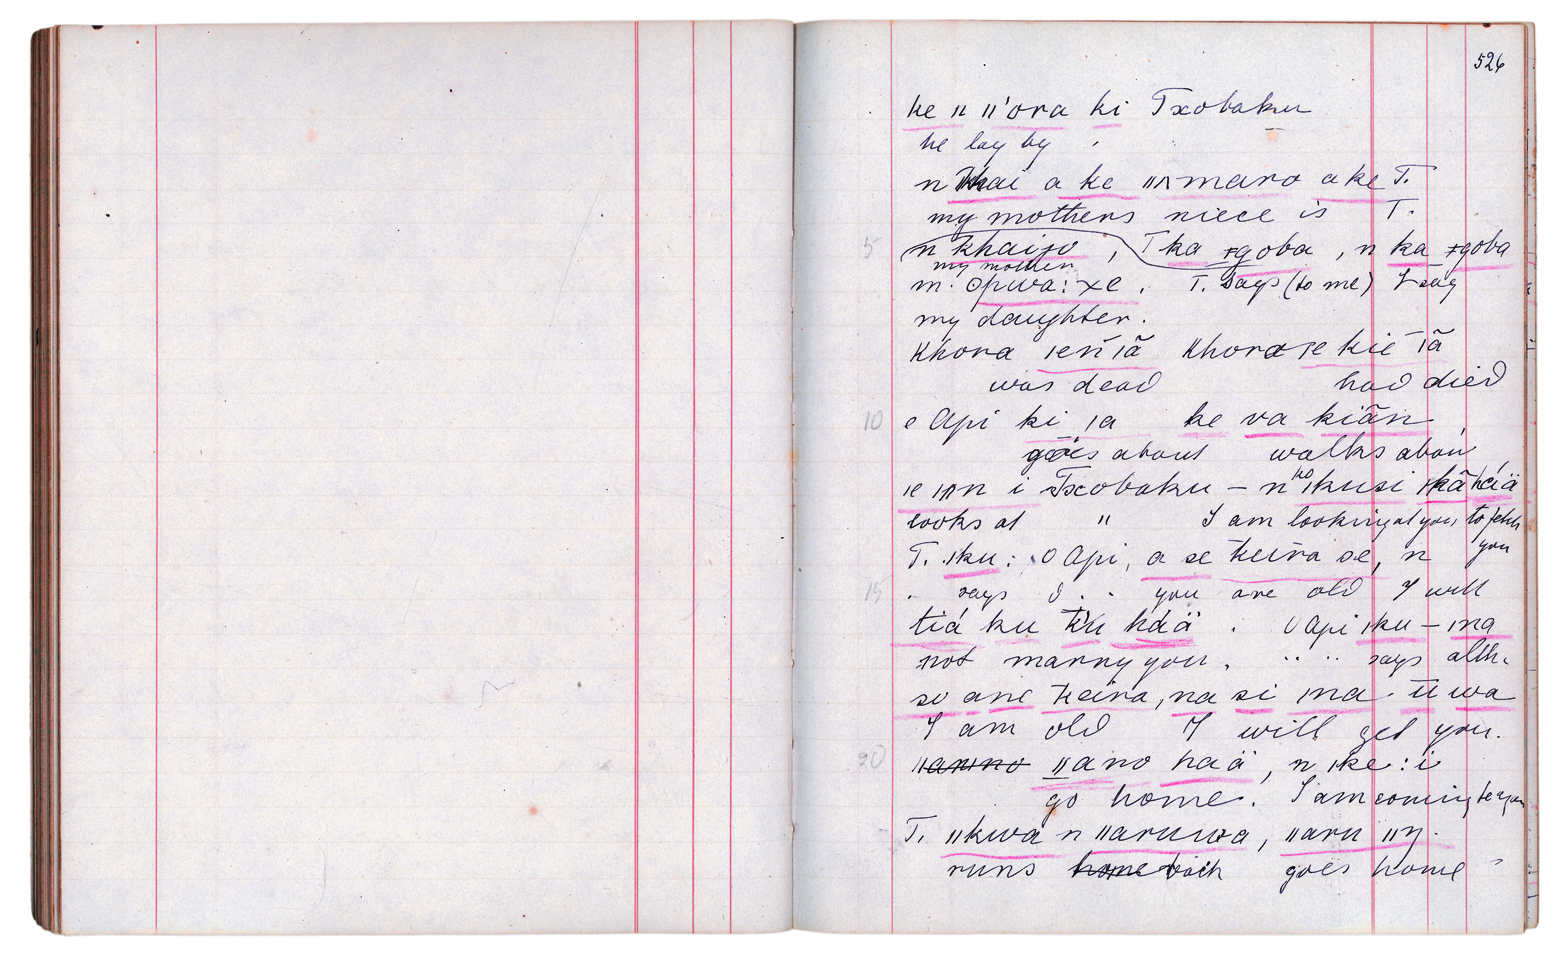 526
ke ǁ ǁ'ora ki Txobaku
he lay by
n khai a ke ǁnmaro a ke T.
my mothers niece is T.
5 n khaijo, T ka ǂgoba, n ka ǂgoba
my mother
m. opwa:xe. T. says (to me) I say
my daughter.
Khora ǀen ǀã Khora ǀe kie ǀã
was dead had died
10 e Api ki ǀa ke va kiãn
goes about walks about
ǀe ǀnn i Txobaku – n ko ǀkusi ǀkã háä
looks at " I am looking at you, to fetch
you
T. ǀku: O Api, a se ǀkeira se, n
15 says O . . you are old I will
tiá ku ku háä. O Api ǀku – ǀna
not marry you. " " says alth.
so ane ǀkeira, na si ǀna ǀi wa
I am old I will get you.
20 ǁano ǁano háä, n ǀke: i
go home. I am coming to you
T. ǁkwa n ǁaruwa, ǁaru ǁŋ.
runs home back goes home